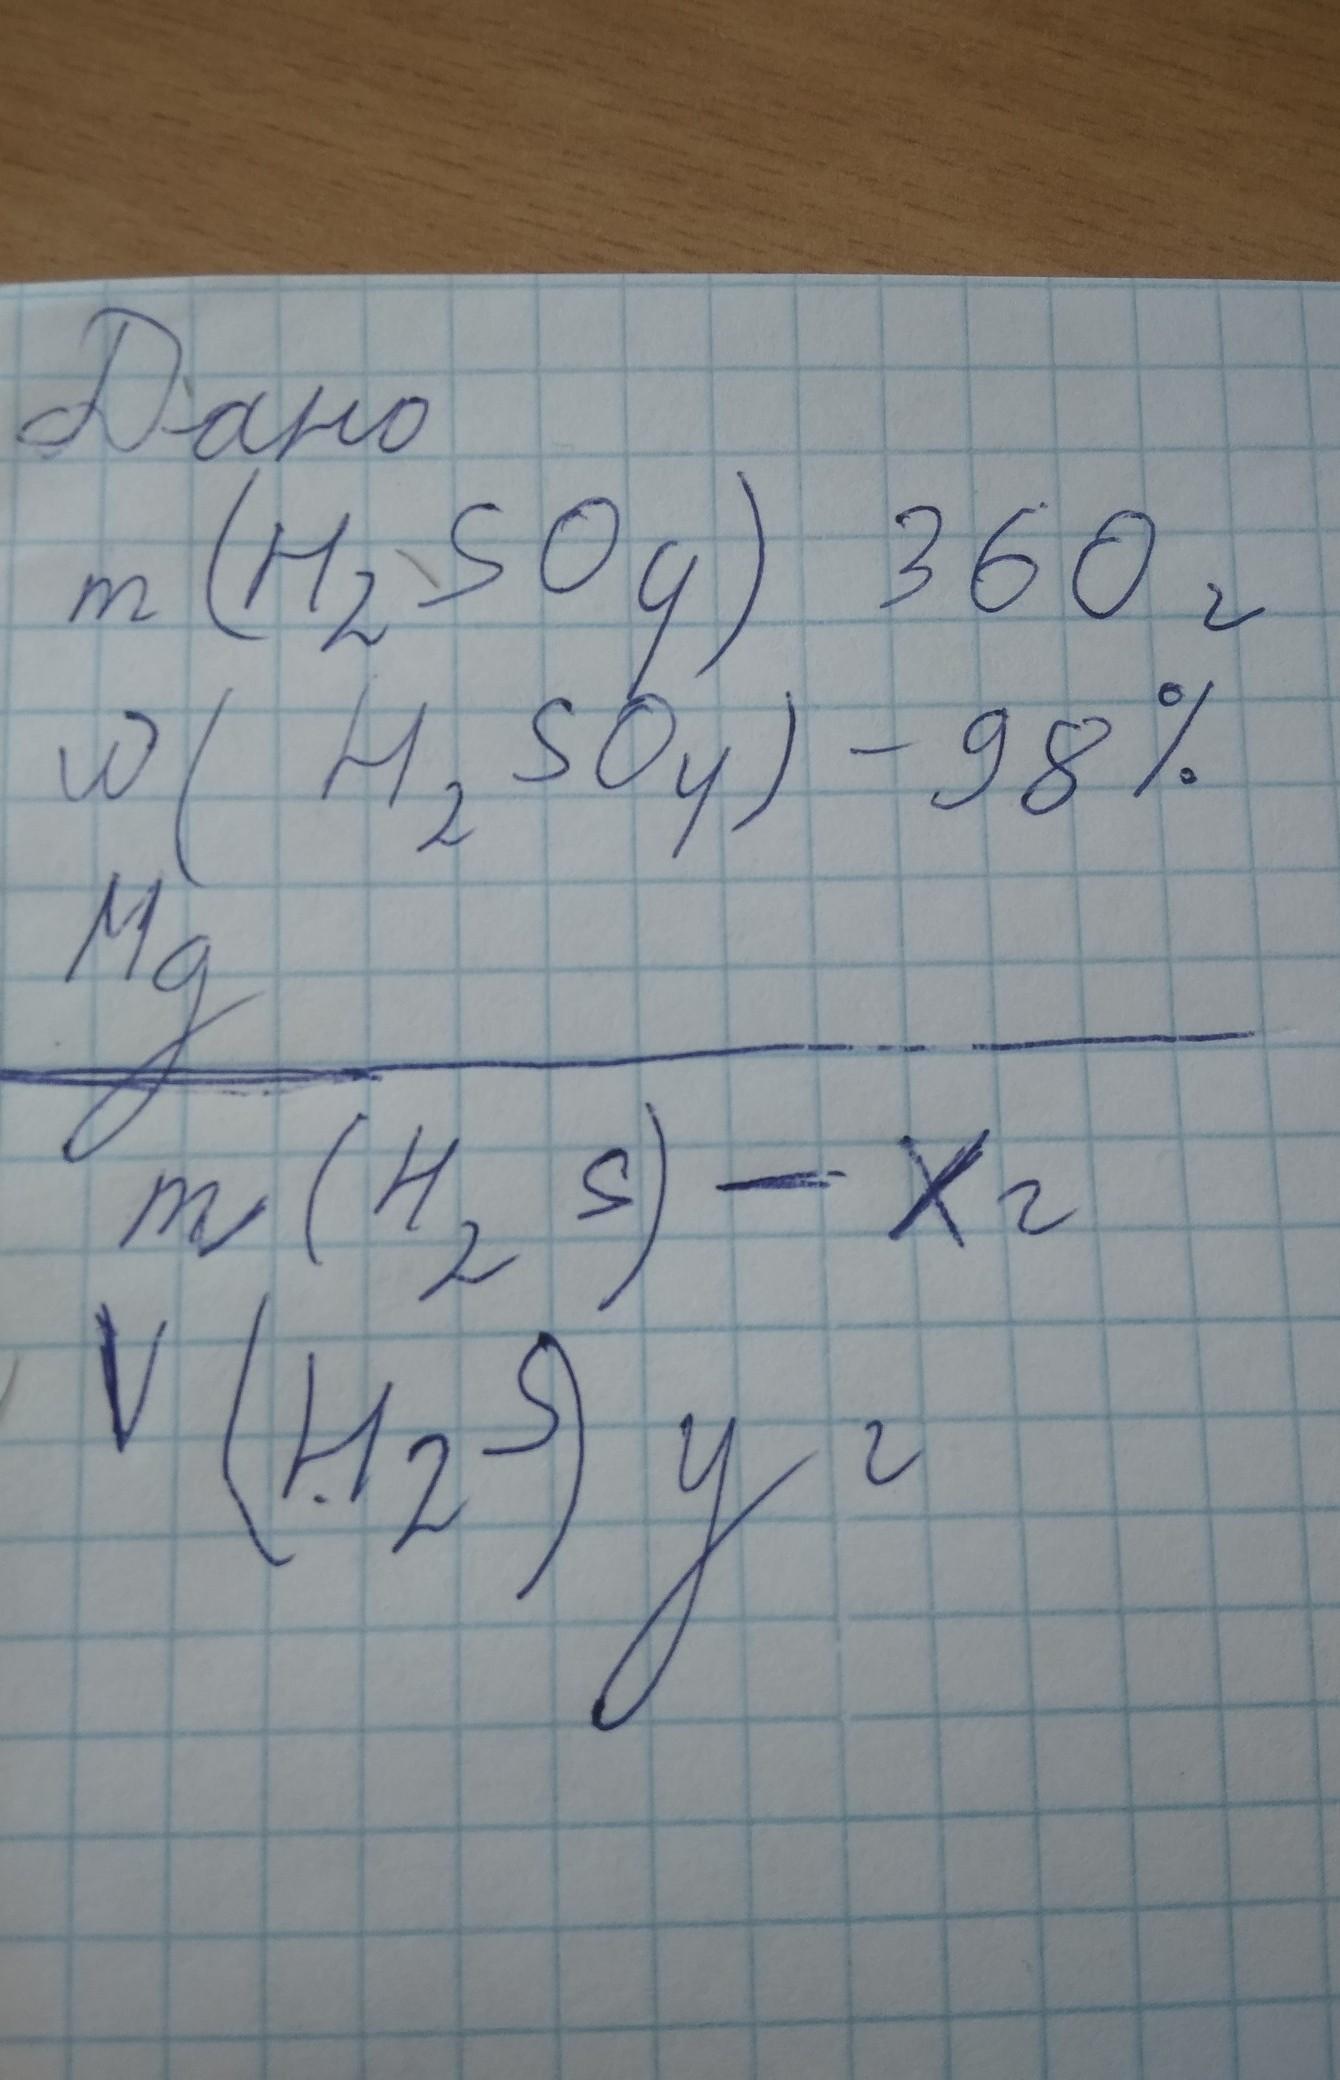 Дано
m (H₂SO₄) 360 г
w ( H₂SO₄) - 98%
Mg
m (H₂S) - X г
V (H₂S) y г